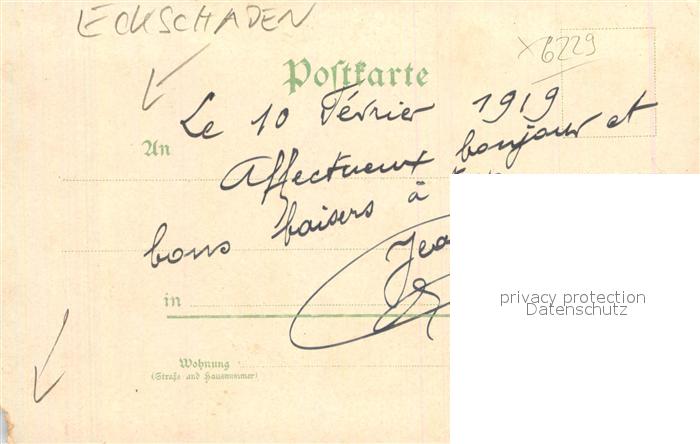 ECKSCHADEN
x6229
Postkarte
Le 10 Février 1919
An
Affectueux bonjour et
bons baisers à
Jea
in
Wohnung
(Straße und Hausnummer)
privacy protection
Datenschutz